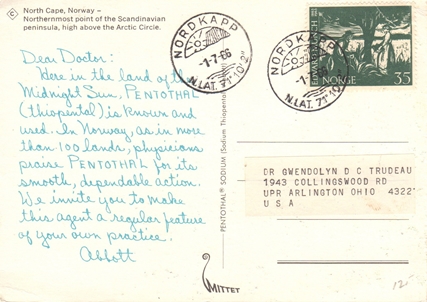 © North Cape, Norway –
Northernmost point of the Scandinavian
peninsula, high above the Arctic Circle.
Dear Doctor:
Here in the land of the
Midnight Sun, PENTOTHAL
(thiopental) is known and
used. In Norway, as in more
than 100 lands, physicians
praise PENTOTHAL for its
smooth, dependable action.
We invite you to make
this agent a regular feature
of your own practice.
Abbott
PENTOTHAL® SODIUM (Sodium Thiopental
NORDKAPP
-1-7-66
N.LAT. 71°10'2"
NORDKAPP
N.LAT. 71°10'2"
NORGE 35
DR GWENDOLYN D C TRUDEAU
1943 COLLINGSWOOD RD
UPR ARLINGTON OHIO 4322
U S A
MITTET